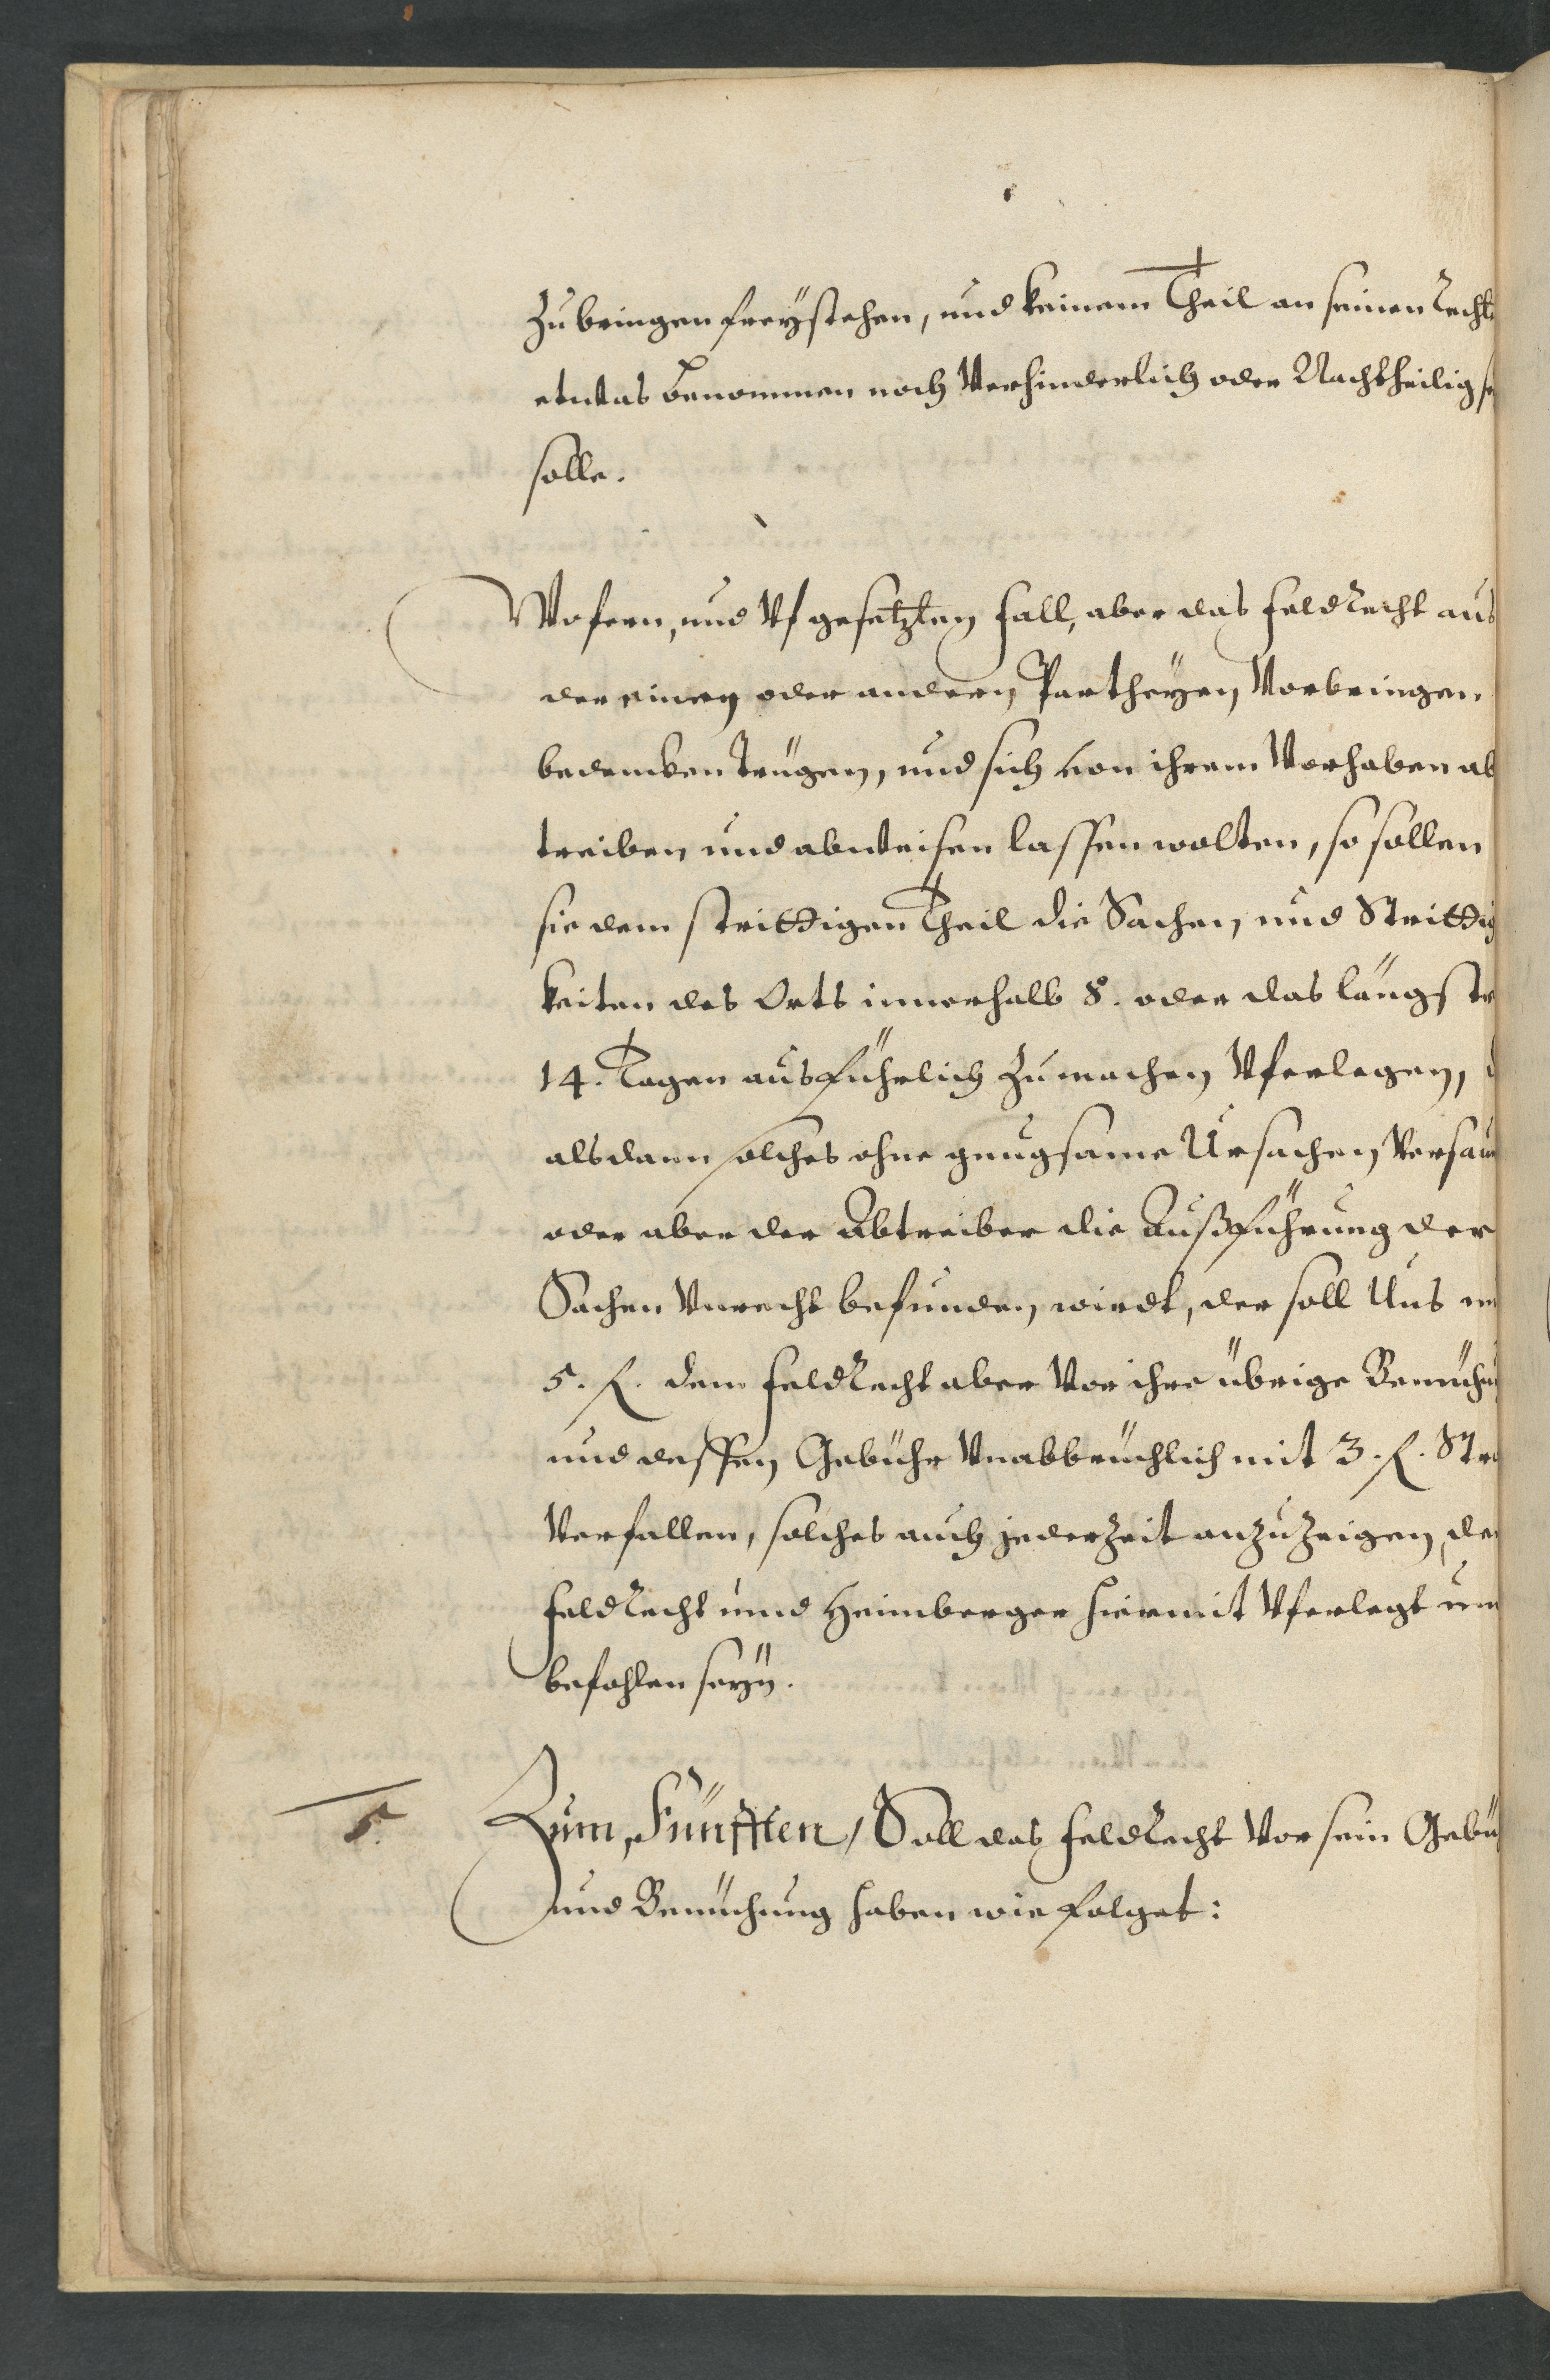 zubringen freÿstehen, und keinem Theil an seinen Recht
etwas benommen noch Verhinderlich oder Nachtheilig
solle.
Wofern, und Vf gesetzten fall, aber das feldRecht aus
der einen oder andern Partheÿen Vorbringen
bedencken trügen, und sich von ihrem Vorhaben ab
treiben und abweisen lassen wolten, so sollen
sie dem strittigen Theil die Sachen und Strittig
keiten des Orts innerhalb 8. oder das längste
14. Tagen ausführlich zumachen Vferlegen,
alsdann solches ohne gnugsame Ursachen Versau
oder aber der Abtreiber die Außführung der
Sachen Vnrecht befunden wirdt, der soll Uns
5. fl. dem feldRecht aber Vor ihre übrige Bemühu
und dessen Gebühr Vnabbrüchlich mit 3. fl. Stra
Verfallen, solches auch jederzeit anzuzeigen, de
feldRecht unnd Heimberger hiermit Vferlegt un
befohlen seÿn.
5. Zum Fünfften / Soll das feldRecht Vor sein Gebü
und Bemühung haben wie folget: